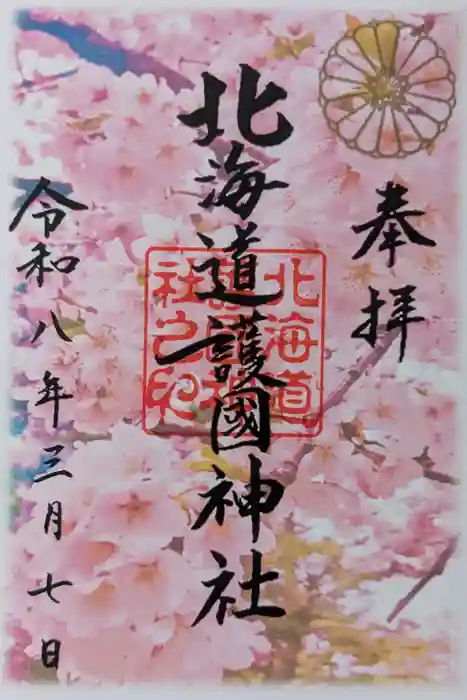 奉拝
北海道護國神社
令和八年三月七日
北海道
社之印